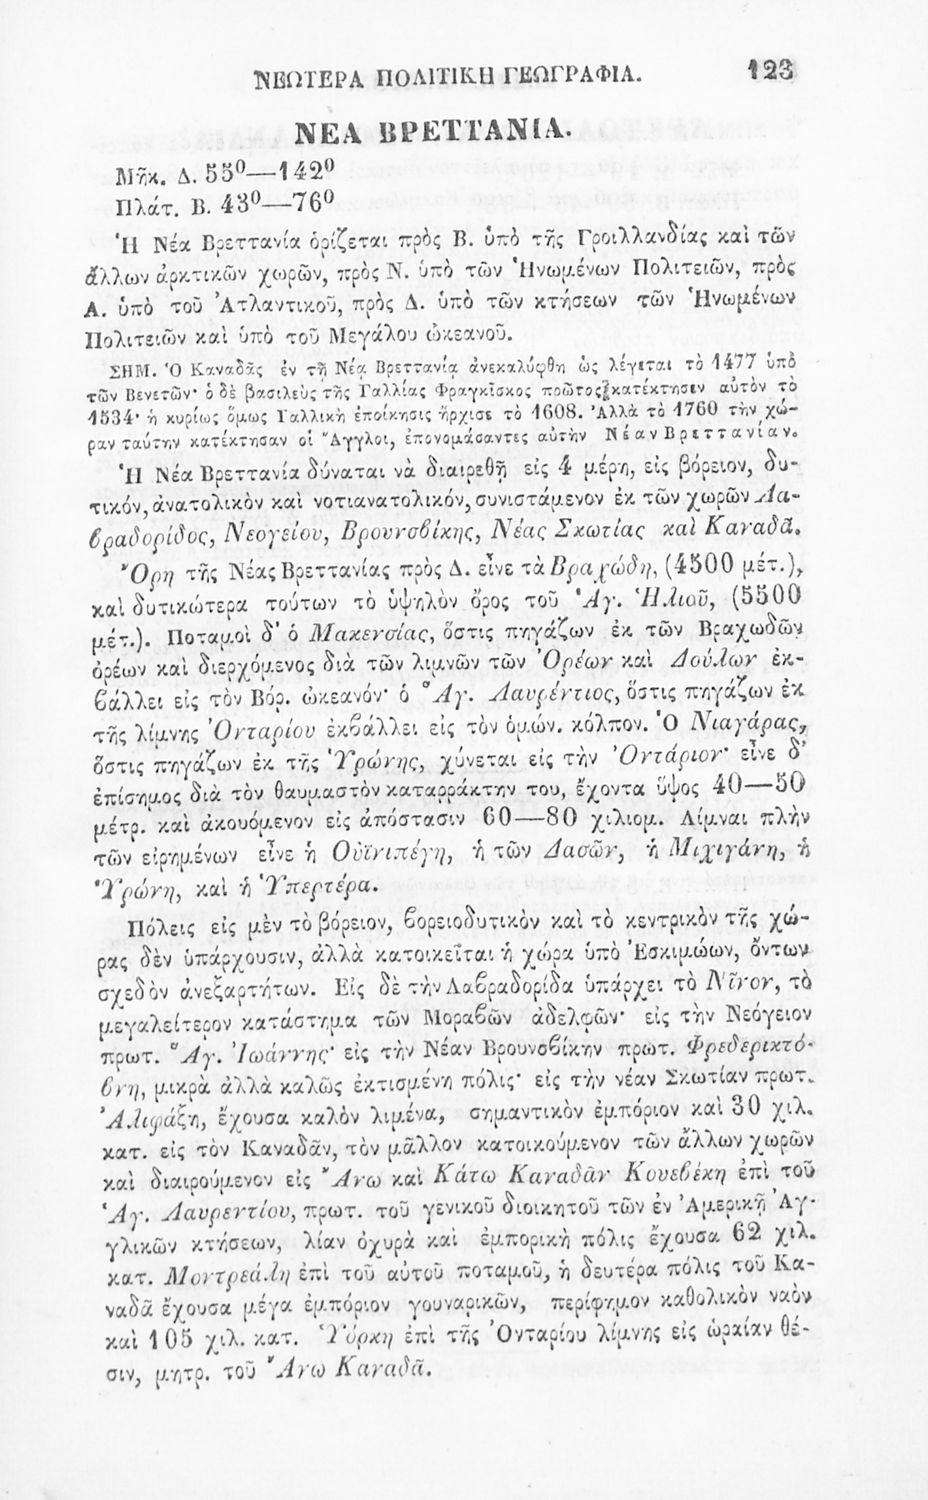 ΝΕΩΤΕΡΑ ΠΟΛΙΤΙΚΗ ΓΕΩΓΡΑΦΙΑ. 123
ΝΕΑ ΒΡΕΤΤΑΝΙΑ.
Μῆκ. Δ. 55⁰—142⁰
Πλάτ. Β. 43⁰—76⁰
Ἡ Νέα Βρεττανία ὁρίζεται πρὸς Β. ὑπὸ τῆς Γροιλλανδίας καὶ τῶν
ἄλλων ἀρκτικῶν χωρῶν, πρὸς Ν. ὑπὸ τῶν Ἡνωμένων Πολιτειῶν, πρὸς
Α. ὑπὸ τοῦ Ἀτλαντικοῦ, πρὸς Δ. ὑπὸ τῶν κτήσεων τῶν Ἡνωμένων
Πολιτειῶν καὶ ὑπὸ τοῦ Μεγάλου ὠκεανοῦ.
ΣΗΜ. Ὁ Καναδᾶς ἐν τῇ Νέᾳ Βρεττανίᾳ ἀνεκαλύφθη ὡς λέγεται τὸ 1477 ὑπὸ
τῶν Βενετῶν· ὁ δὲ βασιλεὺς τῆς Γαλλίας Φραγκῖσκος πρῶτος κατέκτησεν αὐτὸν τὸ
1534· ἡ κυρίως ὅμως Γαλλικὴ ἐποίκησις ἤρχισε τὸ 1608. Ἀλλὰ τὸ 1760 τὴν χώ-
ραν ταύτην κατέκτησαν οἱ Ἄγγλοι, ἐπονομάσαντες αὐτὴν Νέαν Βρεττανίαν.
Ἡ Νέα Βρεττανία δύναται νὰ διαιρεθῇ εἰς 4 μέρη, εἰς βόρειον, δυ-
τικόν, ἀνατολικὸν καὶ νοτιανατολικόν, συνιστάμενον ἐκ τῶν χωρῶν Λα-
βραδορίδος, Νεογείου, Βρουνσβίκης, Νέας Σκωτίας καὶ Καναδᾶ.
Ὄρη τῆς Νέας Βρεττανίας πρὸς Δ. εἶνε τὰ Βραχώδη, (4500 μέτ.),
καὶ δυτικώτερα τούτων τὸ ὑψηλὸν ὄρος τοῦ Ἁγ. Ἠλιοῦ, (5500
μέτ.). Ποταμοὶ δ' ὁ Μακενσίας, ὅστις πηγάζων ἐκ τῶν Βραχωδῶν
ὀρέων καὶ διερχόμενος διὰ τῶν λιμνῶν τῶν Ὀρέων καὶ Δούλων ἐκ-
βάλλει εἰς τὸν Βόρ. ὠκεανόν· ὁ Ἅγ. Λαυρέντιος, ὅστις πηγάζων ἐκ
τῆς λίμνης Ὀνταρίου ἐκβάλλει εἰς τὸν ὁμών. κόλπον. Ὁ Νιαγάρας,
ὅστις πηγάζων ἐκ τῆς Ὑρώνης, χύνεται εἰς τὴν Ὀντάριον· εἶνε δ'
ἐπίσημος διὰ τὸν θαυμαστὸν καταρράκτην του, ἔχοντα ὕψος 40—50
μέτρ. καὶ ἀκουόμενον εἰς ἀπόστασιν 60—80 χιλιομ. Λίμναι πλὴν
τῶν εἰρημένων εἶνε ἡ Οὐϊνιπέγη, ἡ τῶν Δασῶν, ἡ Μιχιγάνη, ἡ
Ὑρώνη, καὶ ἡ Ὑπερτέρα.
Πόλεις εἰς μὲν τὸ βόρειον, βορειοδυτικὸν καὶ τὸ κεντρικὸν τῆς χώ-
ρας δὲν ὑπάρχουσιν, ἀλλὰ κατοικεῖται ἡ χώρα ὑπὸ Ἐσκιμώων, ὄντων
σχεδὸν ἀνεξαρτήτων. Εἰς δὲ τὴν Λαβραδορίδα ὑπάρχει τὸ Νῖνον, τὸ
μεγαλείτερον κατάστημα τῶν Μοραβῶν ἀδελφῶν· εἰς τὴν Νεόγειον
πρωτ. Ἅγ. Ἰωάννης· εἰς τὴν Νέαν Βρουνσβίκην πρωτ. Φρεδερικτό-
βνη, μικρὰ ἀλλὰ καλῶς ἐκτισμένη πόλις· εἰς τὴν νέαν Σκωτίαν πρωτ.
Ἀλιφάξη, ἔχουσα καλὸν λιμένα, σημαντικὸν ἐμπόριον καὶ 30 χιλ.
κατ. εἰς τὸν Καναδᾶν, τὸν μᾶλλον κατοικούμενον τῶν ἄλλων χωρῶν
καὶ διαιρούμενον εἰς Ἄνω καὶ Κάτω Καναδᾶν· Κουεβέκη ἐπὶ τοῦ
Ἁγ. Λαυρεντίου, πρωτ. τοῦ γενικοῦ διοικητοῦ τῶν ἐν Ἀμερικῇ Ἀγ-
γλικῶν κτήσεων, λίαν ὀχυρὰ καὶ ἐμπορικὴ πόλις ἔχουσα 62 χιλ.
κατ. Μοντρεάλη ἐπὶ τοῦ αὐτοῦ ποταμοῦ, ἡ δευτέρα πόλις τοῦ Κα-
ναδᾶ ἔχουσα μέγα ἐμπόριον γουναρικῶν, περίφημον καθολικὸν ναὸν
καὶ 105 χιλ. κατ. Ὑόρκη ἐπὶ τῆς Ὀνταρίου λίμνης εἰς ὡραίαν θέ-
σιν, μητρ. τοῦ Ἄνω Καναδᾶ.